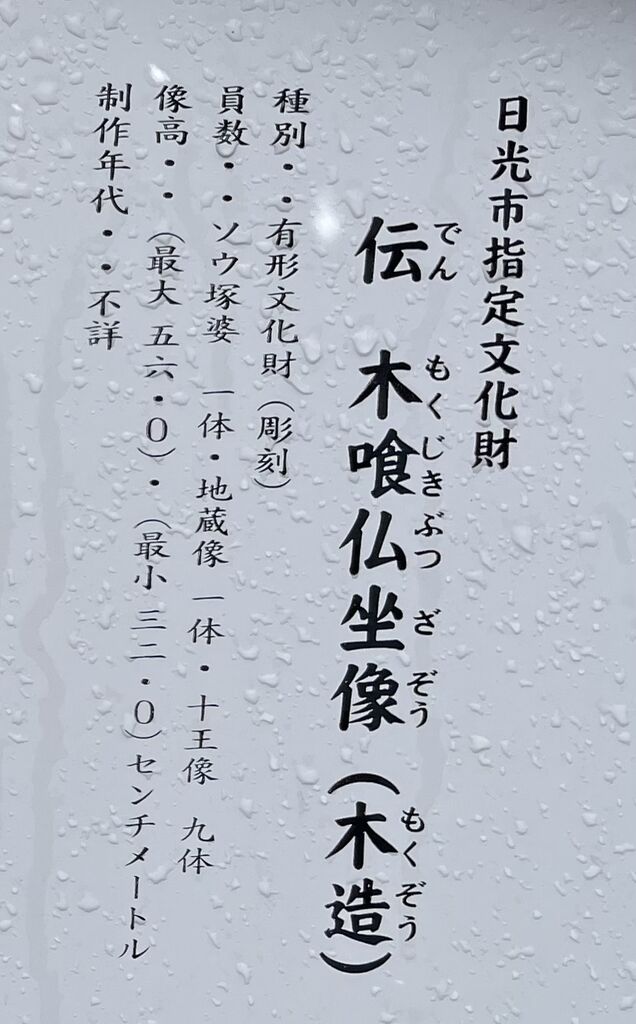 日光市指定文化財
伝 木喰仏坐像(木造)
でん もくじきぶつざぞう もくぞう
種別・・有形文化財(彫刻)
員数・・ソウ塚婆 一体・地蔵像 一体・十王像 九体
像高・・(最大 五六・0)・(最小 三二・0)センチメートル
制作年代・・不詳